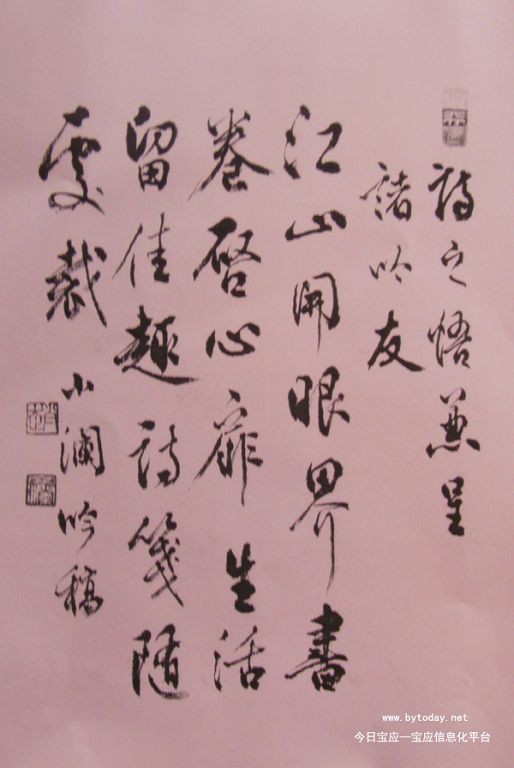 詩之悟兼呈
諸吟友
江山開眼界書
卷啓心扉生活
留佳趣詩箋隨
處裁
小瀾吟稿
www.bytoday.net
今日宝应—宝应信息化平台